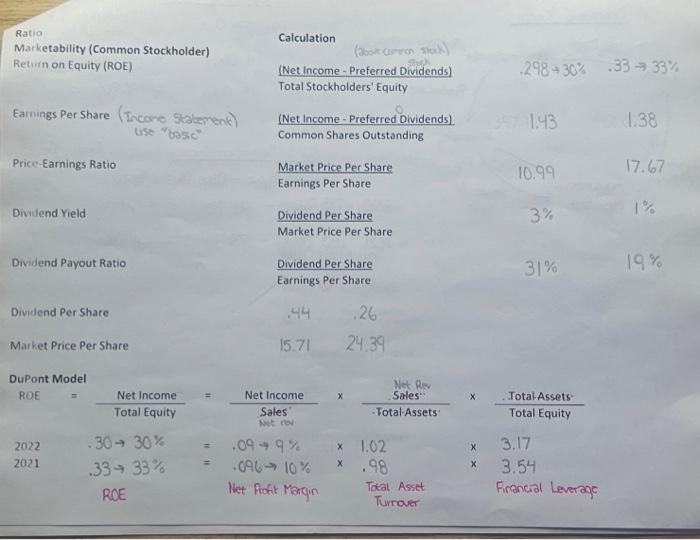 Ratio Calculation
Marketability (Common Stockholder) (about common stock)
Return on Equity (ROE) (Net Income - Preferred Dividends) .298→30% .33→33%
Total Stockholders' Equity
Earnings Per Share (Income Statement) (Net Income - Preferred Dividends) 1.43 1.38
use "basic" Common Shares Outstanding
0
Price-Earnings Ratio Market Price Per Share 10.99 17.67
Earnings Per Share
Dividend Yield Dividend Per Share 3% 1%
Market Price Per Share
Dividend Payout Ratio Dividend Per Share 31% 19%
Earnings Per Share
Dividend Per Share .44 .26
Market Price Per Share 15.71 24.39
DuPont Model Net Rev
ROE = Net Income = Net Income x Sales x Total Assets
Total Equity Sales Total Assets Total Equity
Net rev
2022 .30→30% = .09→9% x 1.02 x 3.17
2021 .33→33% = .096→10% x .98 x 3.54
ROE Net Profit Margin Total Asset Financial Leverage
Turnover